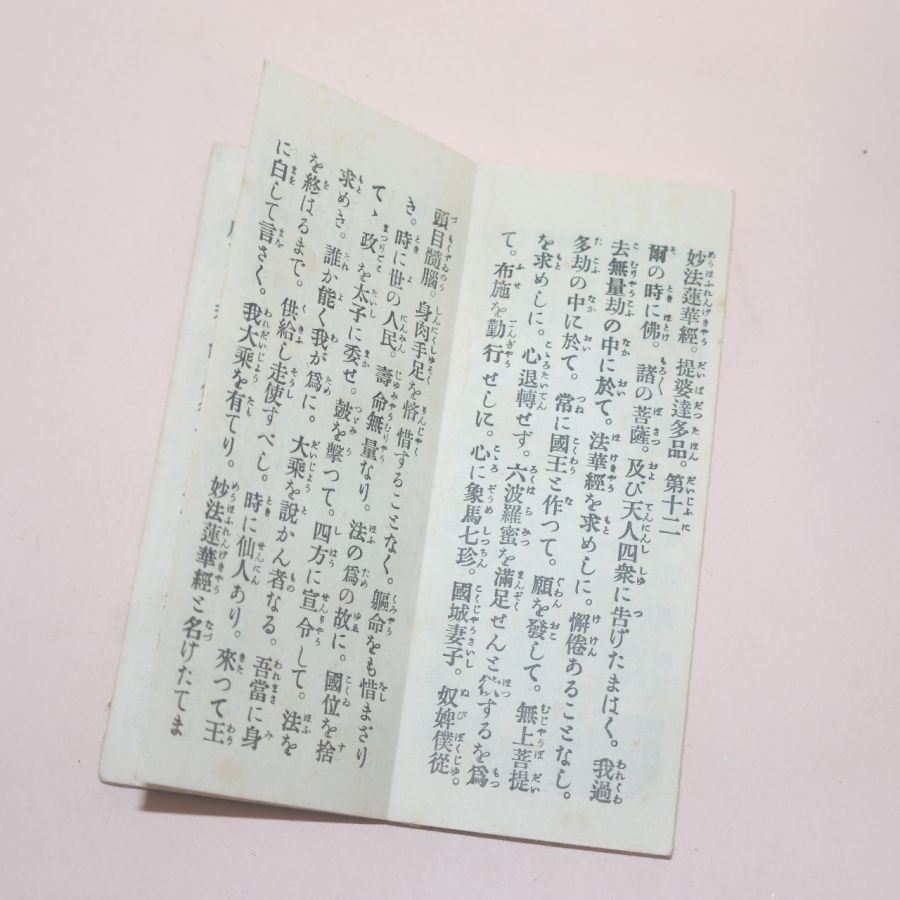 妙法蓮華經。提婆達多品。第十二
爾の時に佛。諸の菩薩。及び天人四衆に告げたまはく。我過
去無量劫の中に於て。法華經を求めしに。懈倦あることなし。
多劫の中に於て。常に國王と作つて。願を發して。無上菩提
を求めしに。心退轉せず。六波羅蜜を滿足せんと欲するを爲
て。布施を勤行せしに。心に象馬七珍。國城妻子。奴婢僕從。
頭目髓腦。身肉手足を悋惜することなく。軀命をも惜まざり
き。時に世の人民。壽命無量なり。法の爲の故に。國位を捨
て、政を太子に委せ。皷を擊つて。四方に宣令して。法を
求めき。誰か能く我が爲に。大乘を說かん者なる。吾當に身
を終はるまで。供給し走使すべし。時に仙人あり。來つて王
に白して言さく。我大乘を有てり。妙法蓮華經と名けたてま